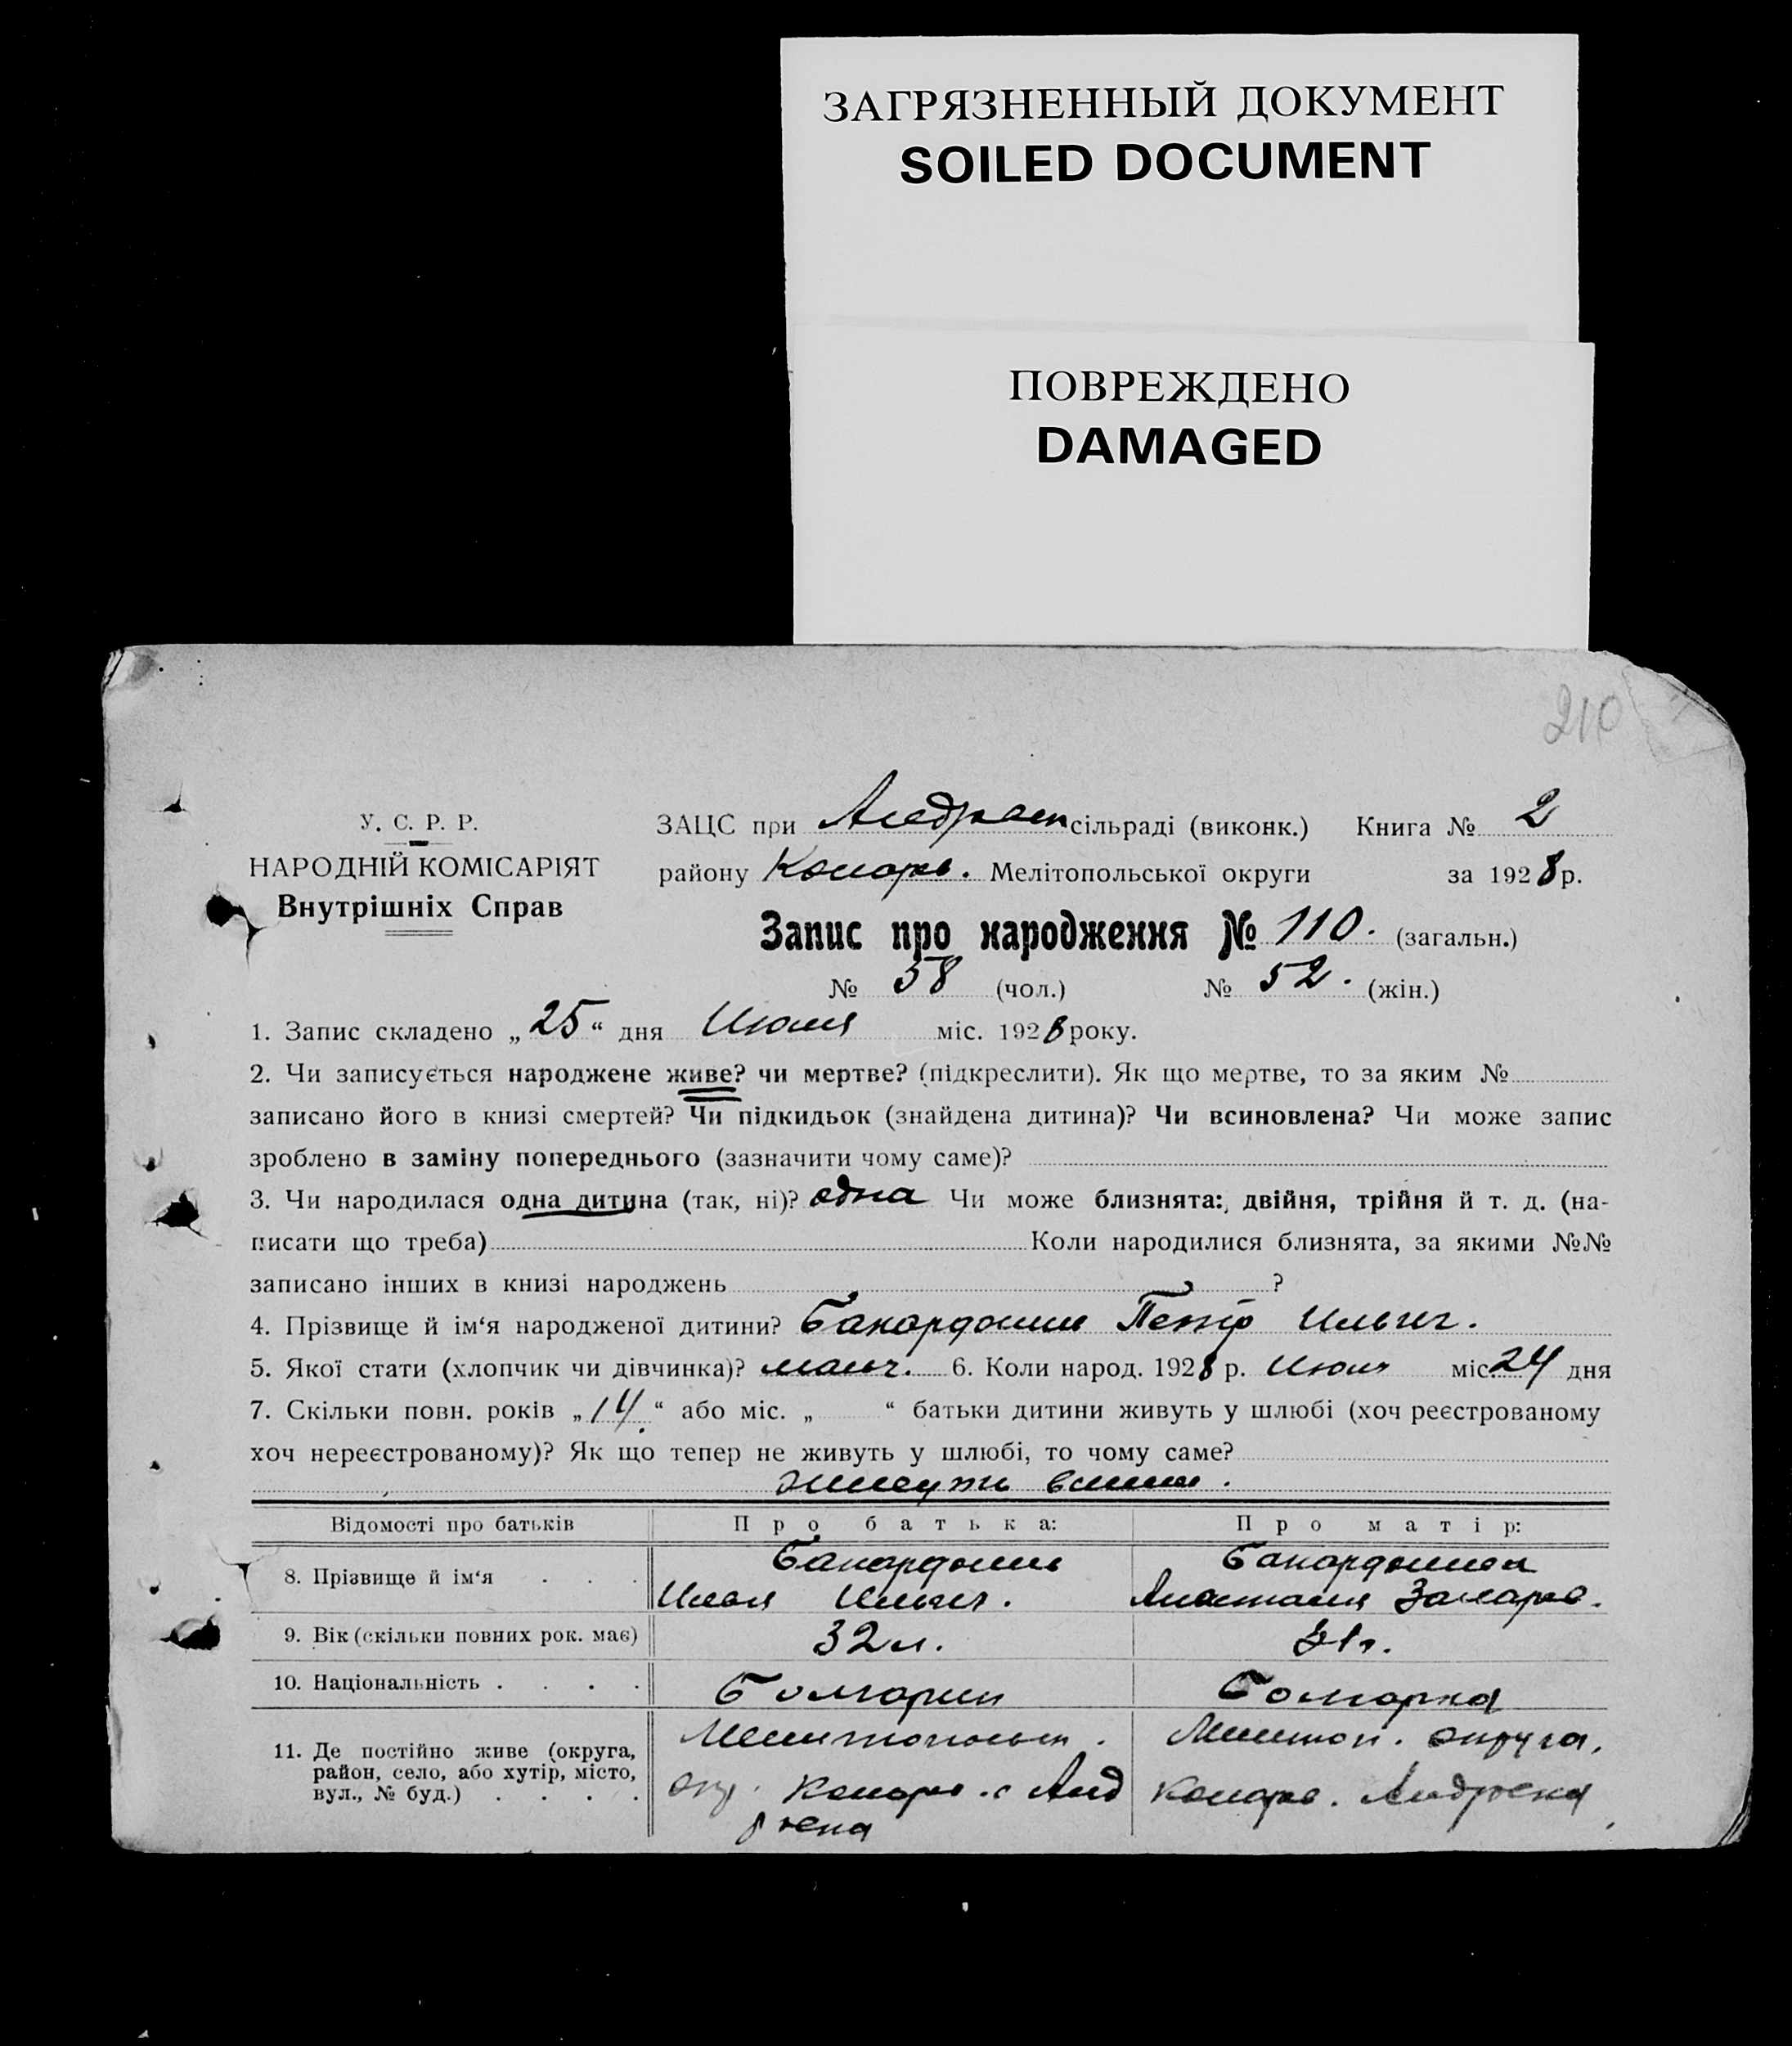 ЗАГРЯЗНЕННЫЙ ДОКУМЕНТ
SOILED DOCUMENT
ПОВРЕЖДЕНО
DAMAGED
210
У. С. Р. Р.
НАРОДНІЙ КОМІСАРІЯТ
Внутрішніх Справ
ЗАЦС при сільраді (виконк.) Книга № 2
району Коларв. Мелітопольської округи за 1928 р.
Запис про народження № 110. (загальн.)
№ 58 (чол.) № 52. (жін.)
1. Запис складено „25“ дня Июля міс. 1928 року.
2. Чи записується народжене живе? чи мертве? (підкреслити). Як що мертве, то за яким №
записано його в книзі смертей? Чи підкидьок (знайдена дитина)? Чи всиновлена? Чи може запис
зроблено в заміну попереднього (зазначити чому саме)?
3. Чи народилася одна дитина (так, ні)? одна Чи може близнята: двійня, трійня й т. д. (на-
писати що треба) Коли народилися близнята, за якими №№
записано інших в книзі народжень ?
4. Прізвище й ім‘я народженої дитини? Петр Ильич.
5. Якої стати (хлопчик чи дівчинка)? мальч. 6. Коли народ. 1928 р. Июля міс. 24 дня
7. Скільки повн. років „14“ або міс. „ “ батьки дитини живуть у шлюбі (хоч реєстрованому
хоч нереєстрованому)? Як що тепер не живуть у шлюбі, то чому саме?
Відомості про батьків Про батька: Про матір:
8. Прізвище й ім‘я . . .
Илья Ильич. Анастасия Захаров.
9. Вік (скільки повних рок. має) 32 л.
10. Національність . . . . Болгарин Болгарка
11. Де постійно живе (округа, район, село, або хутір, місто, вул., № буд.) . . . .
Мелитопольск. Мелитоп. округа,
окр. Коларв. с Анд Коларв. Андровка
ровка